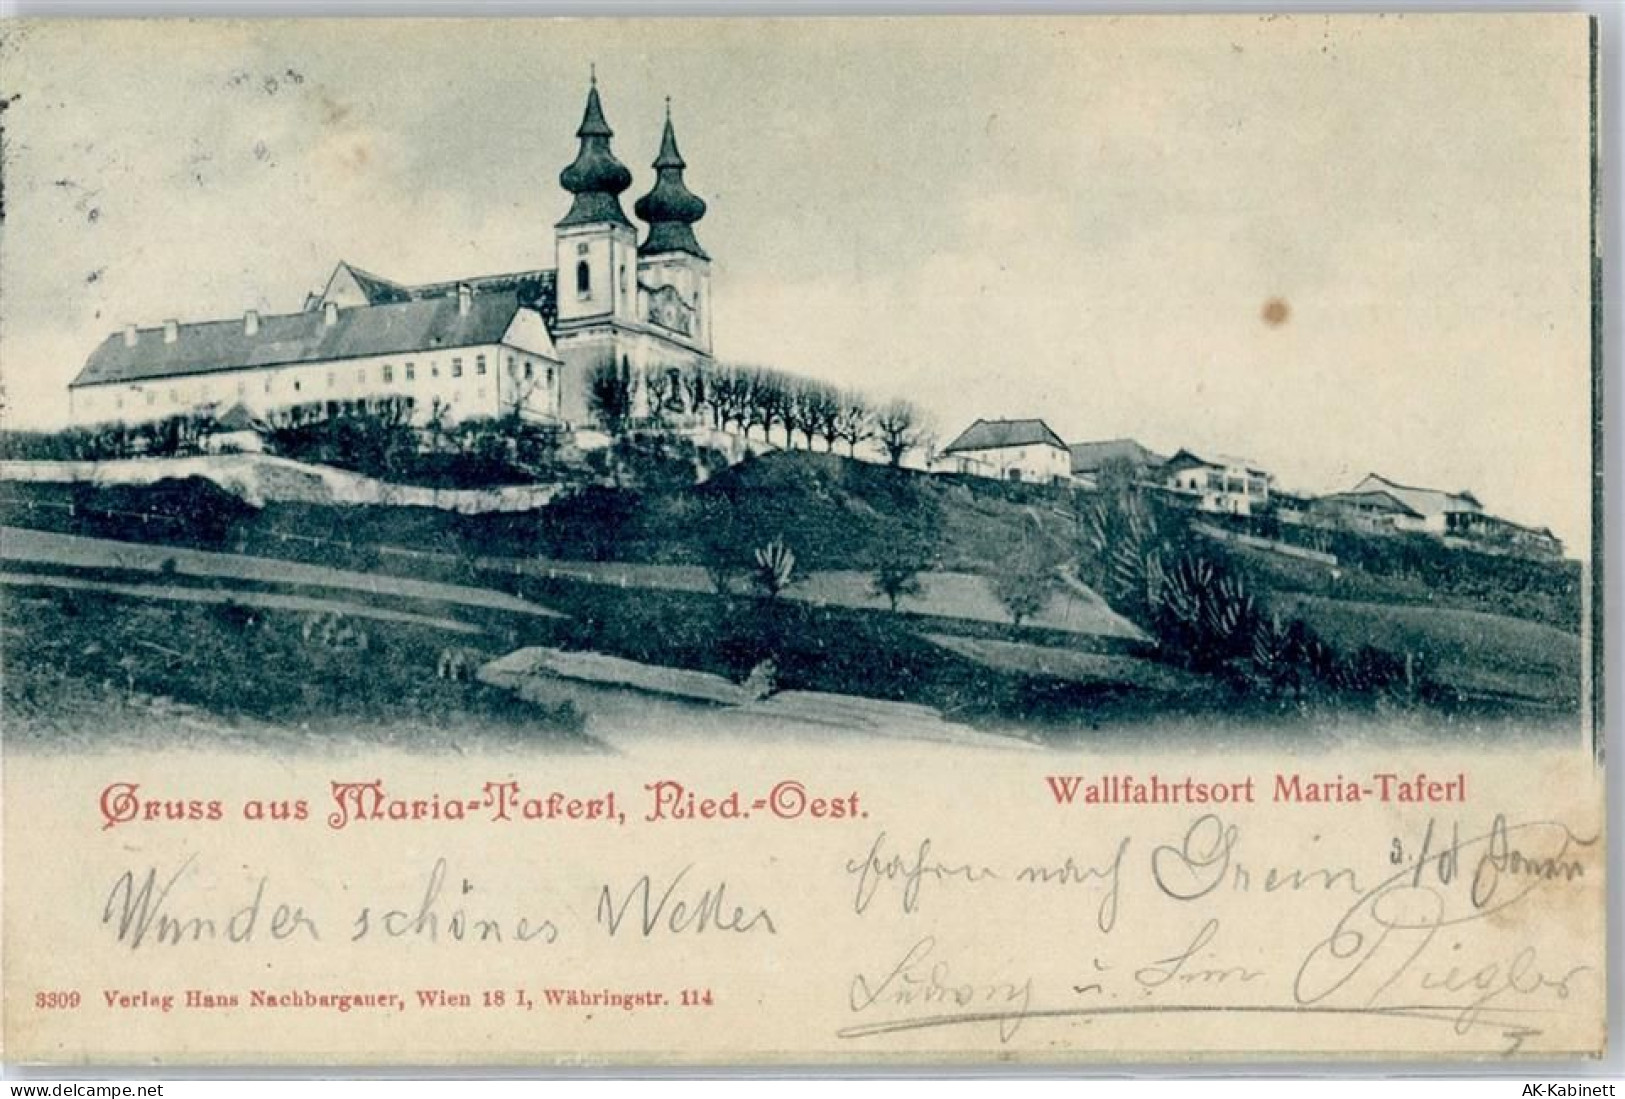 Gruss aus Maria-Taferl, Nied.-Oest.
Wallfahrtsort Maria-Taferl
Wunder schönes Wetter
fahren nach Grein a/d Donau
Ludwig u.
3309 Verlag Hans Nachbargauer, Wien 18 I, Währingstr. 114
www.delcampe.net
AK-Kabinett